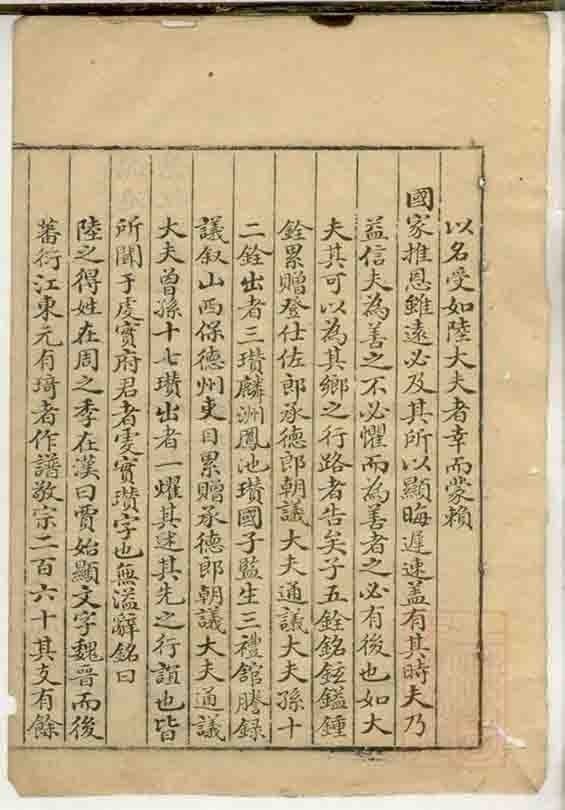 以名受如陸大夫者幸而蒙賴
國家推恩雖遠必及其所以顯晦遲速盖有其時夫乃
益信夫為善之不必懼而為善者之必有後也如大
夫其可以為其鄉之行路者告矣子五銓銘鉦鎰鍾
銓累贈登仕佐郎承德郎朝議大夫通議大夫孫十
二銓出者三瓚麟洲鳳池瓚國子監生三禮館謄録
議叙山西保德州吏目累贈承德郎朝議大夫通議
大夫曽孫十七瓚出者一燿其述其先之行誼也皆
所聞于虔實府君者虔實瓚字也無溢辭銘曰
陸之得姓在周之季在漢曰賈始顯文字魏晋而後
蕃衍江東元有琦者作譜敬宗二百六十其支有餘